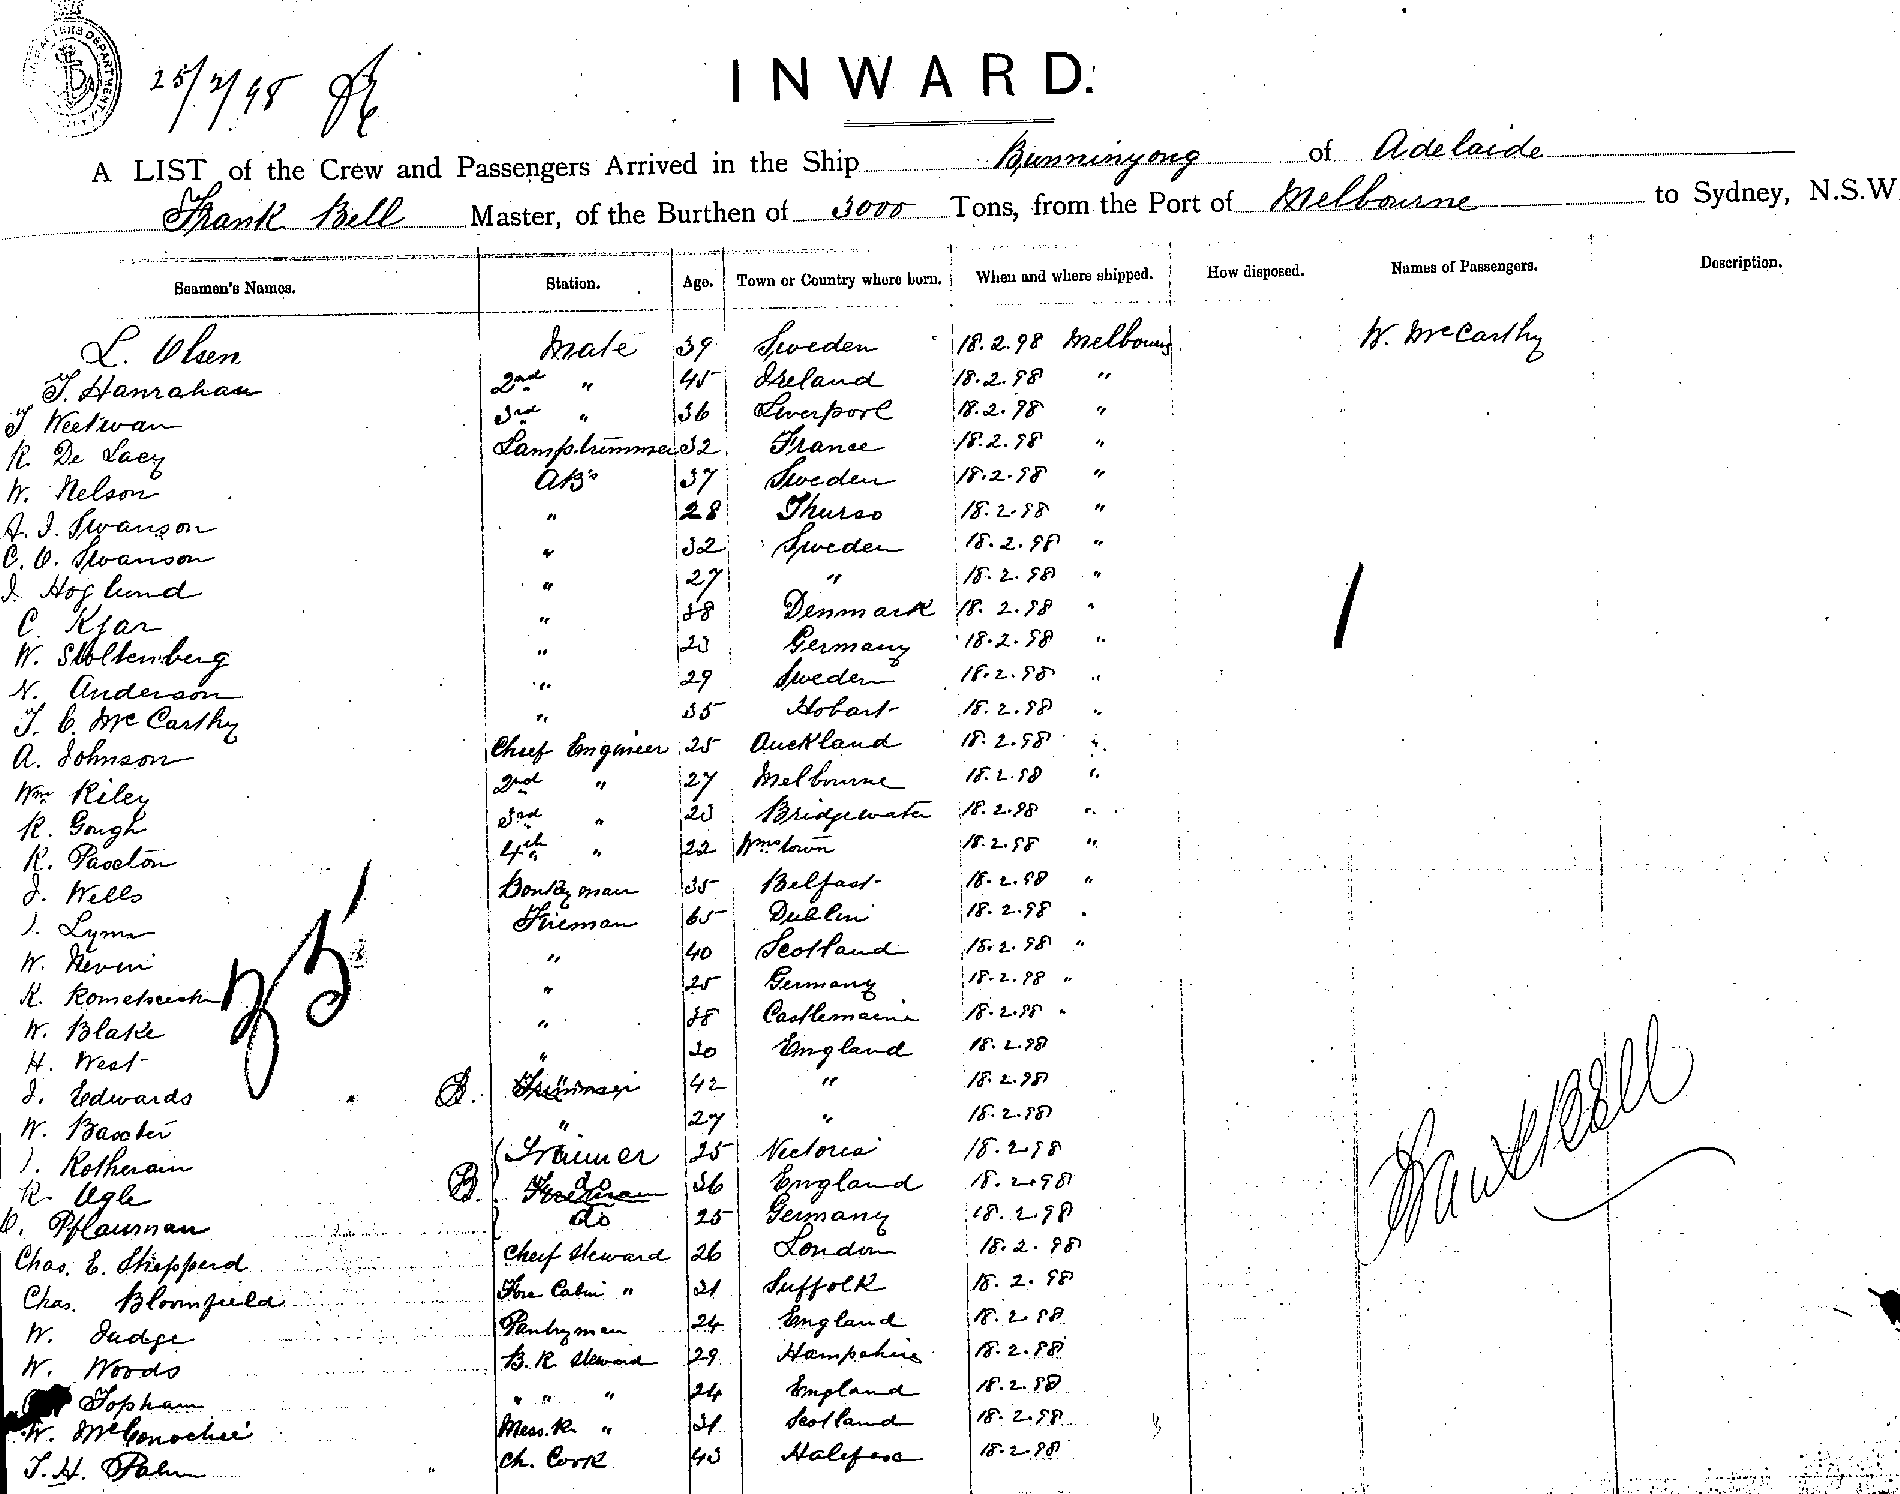 25/2/98
INWARD.
A LIST of the Crew and Passengers Arrived in the Ship Bunninyong of Adelaide
Frank Bell Master, of the Burthen of 3000 Tons, from the Port of Melbourne to Sydney, N.S.W
Seamen's Names. Station. Age. Town or Country where born. When and where shipped. How disposed. Names of Passengers. Description.
L. Olsen Mate 39 Sweden 18.2.98 Melbourne W. McCarthy
T. Hanrahan 2nd " 45 Ireland 18.2.98 "
T. Weetman 3rd " 36 Liverpool 18.2.98 "
R. De Lacy Lamptrimmer 32 France 18.2.98 "
W. Nelson AB's 37 Sweden 18.2.98 "
A. J. Swanson " 28 Thurso 18.2.98 "
C. O. Swanson " 32 Sweden 18.2.98 "
J. Hoglund " 27 " 18.2.98 "
C. Kjar " 38 Denmark 18.2.98 "
W. Stoltenberg " 23 Germany 18.2.98 "
N. Anderson " 29 Sweden 18.2.98 "
T. C. McCarthy " 35 Hobart 18.2.98 "
A. Johnson Chief Engineer 25 Auckland 18.2.98 "
Wm Riley 2nd " 27 Melbourne 18.2.98 "
R. Gough 3rd " 23 Bridgewater 18.2.98 "
R. Paxton 4th " 22 Wmstown 18.2.98 "
J. Wells Donkeyman 35 Belfast 18.2.98 "
J. Lyme Fireman 65 Dublin 18.2.98 "
W. Nevin " 40 Scotland 18.2.98 "
R. " 25 Germany 18.2.98 "
W. Blake " 38 Castlemaine 18.2.98 "
H. West " 30 England 18.2.98
J. Edwards B. Trimmer 42 " 18.2.98
W. Baxter " 27 " 18.2.98
J. Rotherain Trimmer 25 Victoria 18.2.98
R. Ogle B. do 36 England 18.2.98
O. Pflauman do 25 Germany 18.2.98
Chas. E. Shepperd Cheif Steward 26 London 18.2.98
Chas. Bloomfield Fore Cabin " 31 Suffolk 18.2.98
W. Judge Pantryman 24 England 18.2.98
W. Woods B.R. Steward 29 Hampshire 18.2.98
Topham " " " 24 England 18.2.98
W. McConochie Mess.R. " 31 Scotland 18.2.98
T. H. Palm Ch. Cook 43 Halifax 18.2.98
Frank Bell